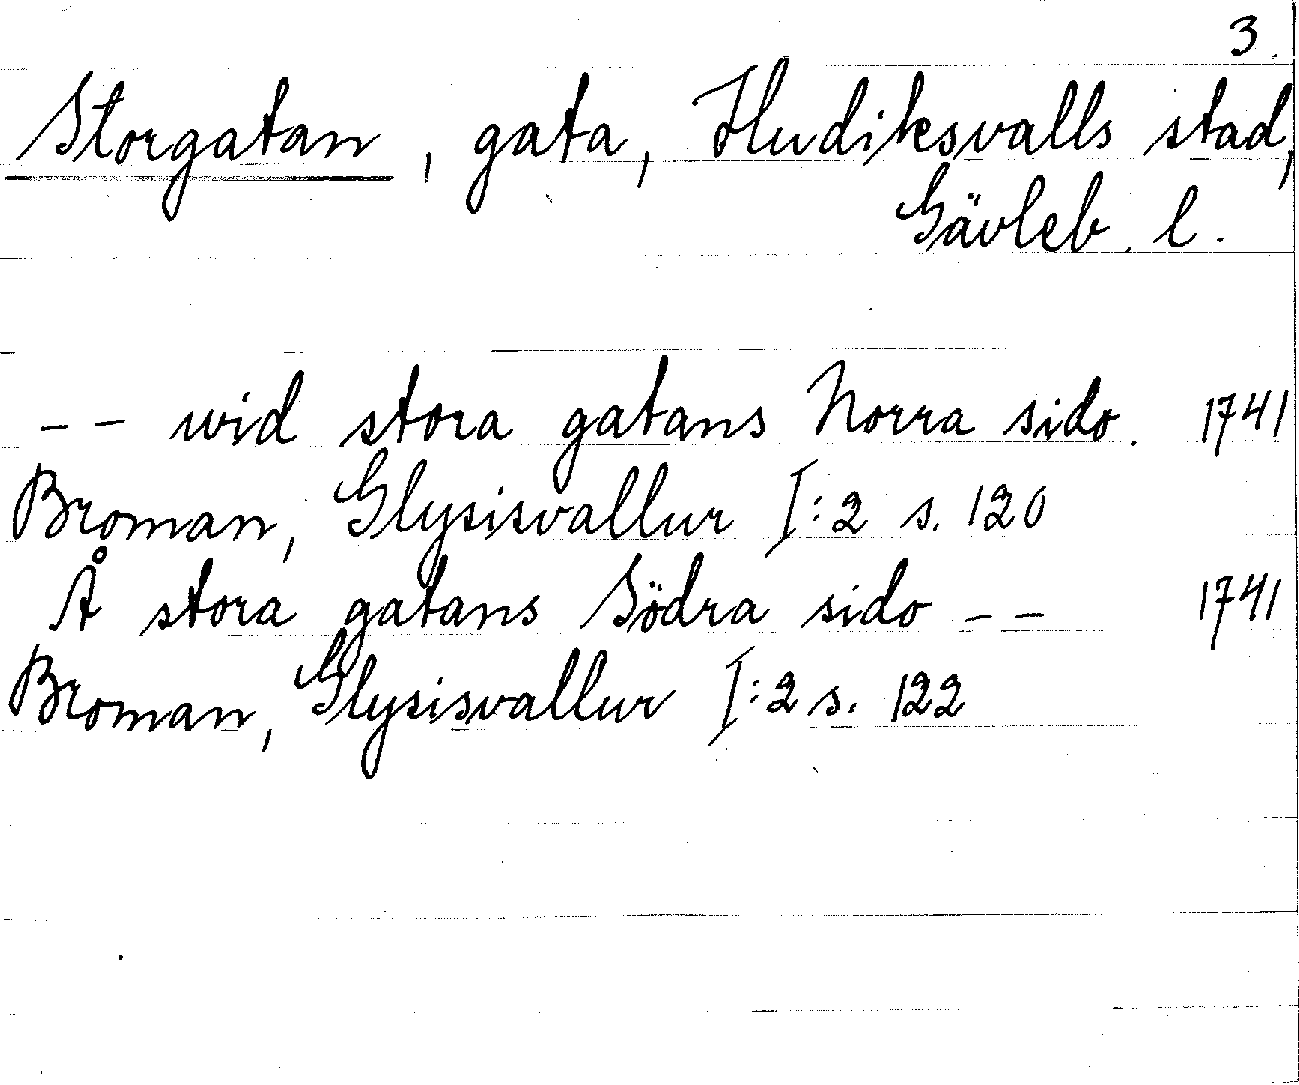 3.
Storgatan, gata, Hudiksvalls stad,
Gävleb. l.
-- wid stora gatans Norra sido. 1741
Broman, Glysisvallur I:2 s. 120
Å stora gatans Södra sido -- 1741
Broman, Glysisvallur I:2 s. 122